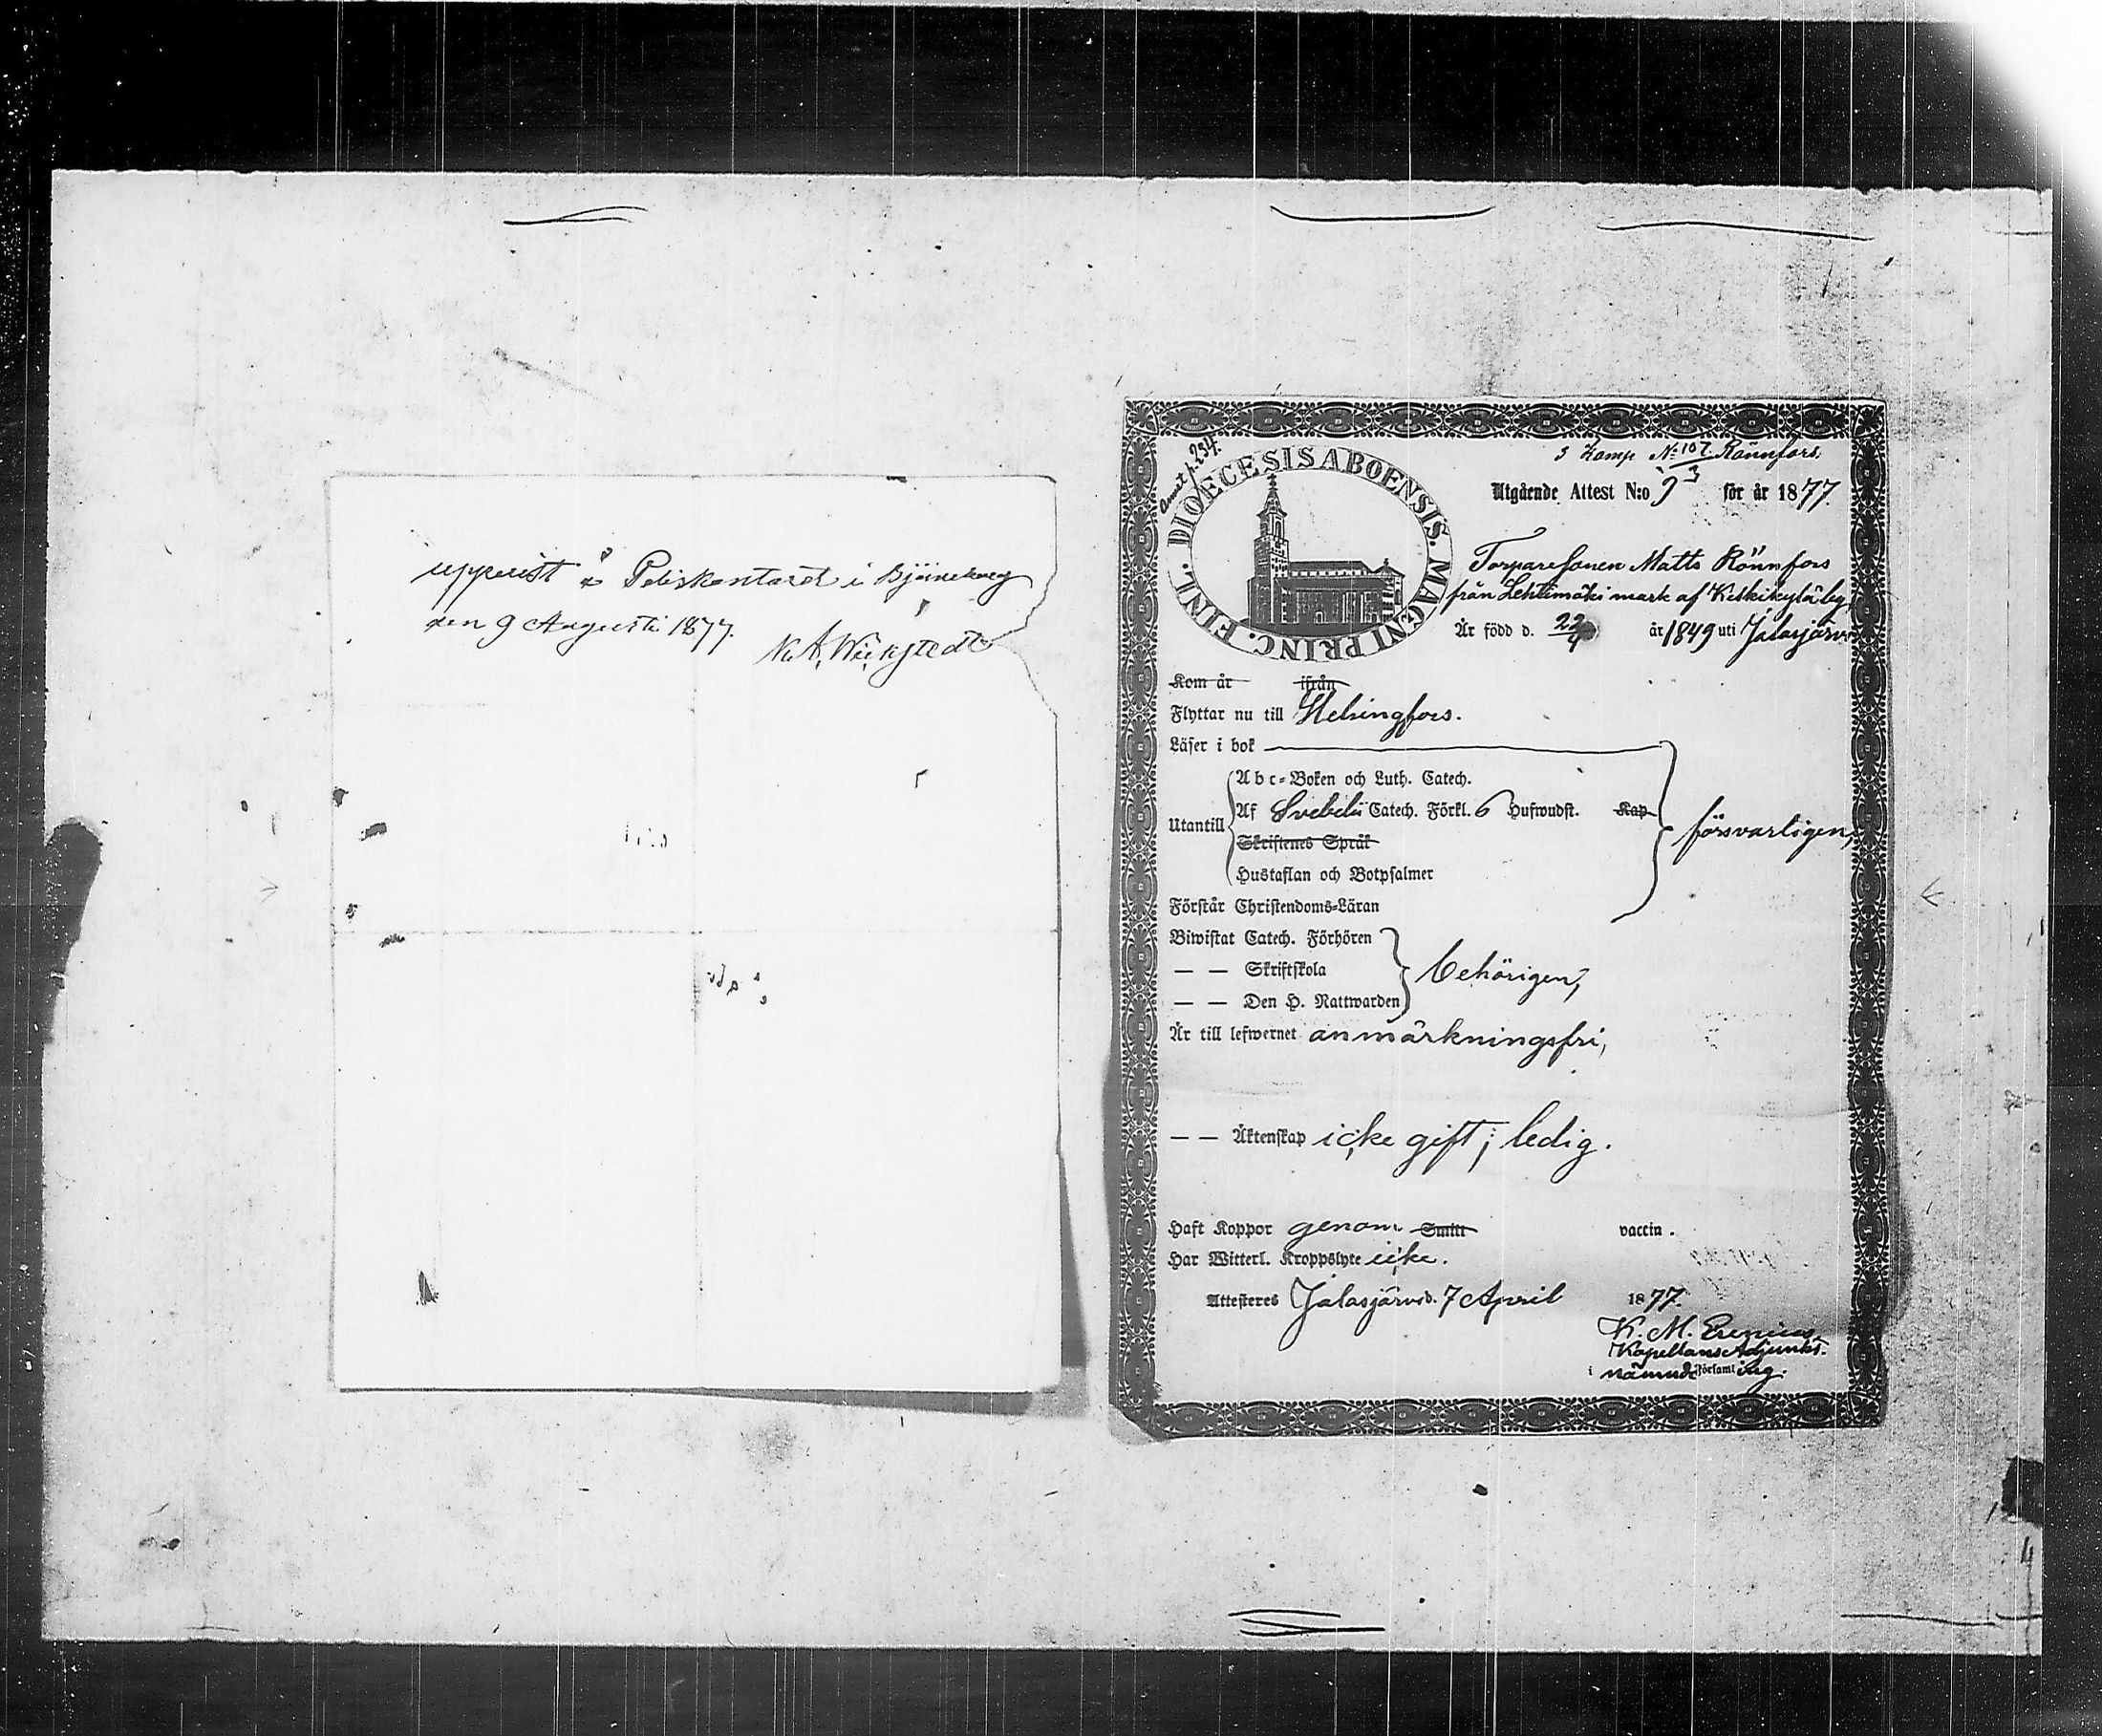 uppvist å Poliskontoret i Björneborg
den 9 Augusti 1877.
K. A. Wickstedt
Annot p. 234.
3 Komp No 107 Rönnfors
3
DIOECESIS ABOENSIS. MAGNI PRINC. FINL.
Utgående Attest N:o 9 för år 1877
Torparesonen Matts Rönnfors
från Lehtimäki mark af Keskikylä by,
Är född d. 22/4 år 1849 uti Jalasjärvi
Kom år ifrån
Flyttar nu till Helsingfors.
Läser i bok
Abc-Boken och Luth. Catech.
Utantill Af Svebelii Catech. Förkl. 6 Hufwudst. Kap. försvarligen,
Skriftenes Språk
Hustaflan och Botpsalmer
Förstår Christendoms-Läran
Biwistat Catech. Förhören
— — Skriftskola behörigen,
— — Den H. Nattwarden
Är till lefwernet anmärkningsfri,
— — Äktenskap icke gift; ledig.
Haft Koppor genom Smitt vaccin.
Har Witterl. Kroppslyte icke.
Attesteres Jalasjärvi d. 7 April 1877.
K. M.
Kapellans Adjunkt.
i nämnde församling.